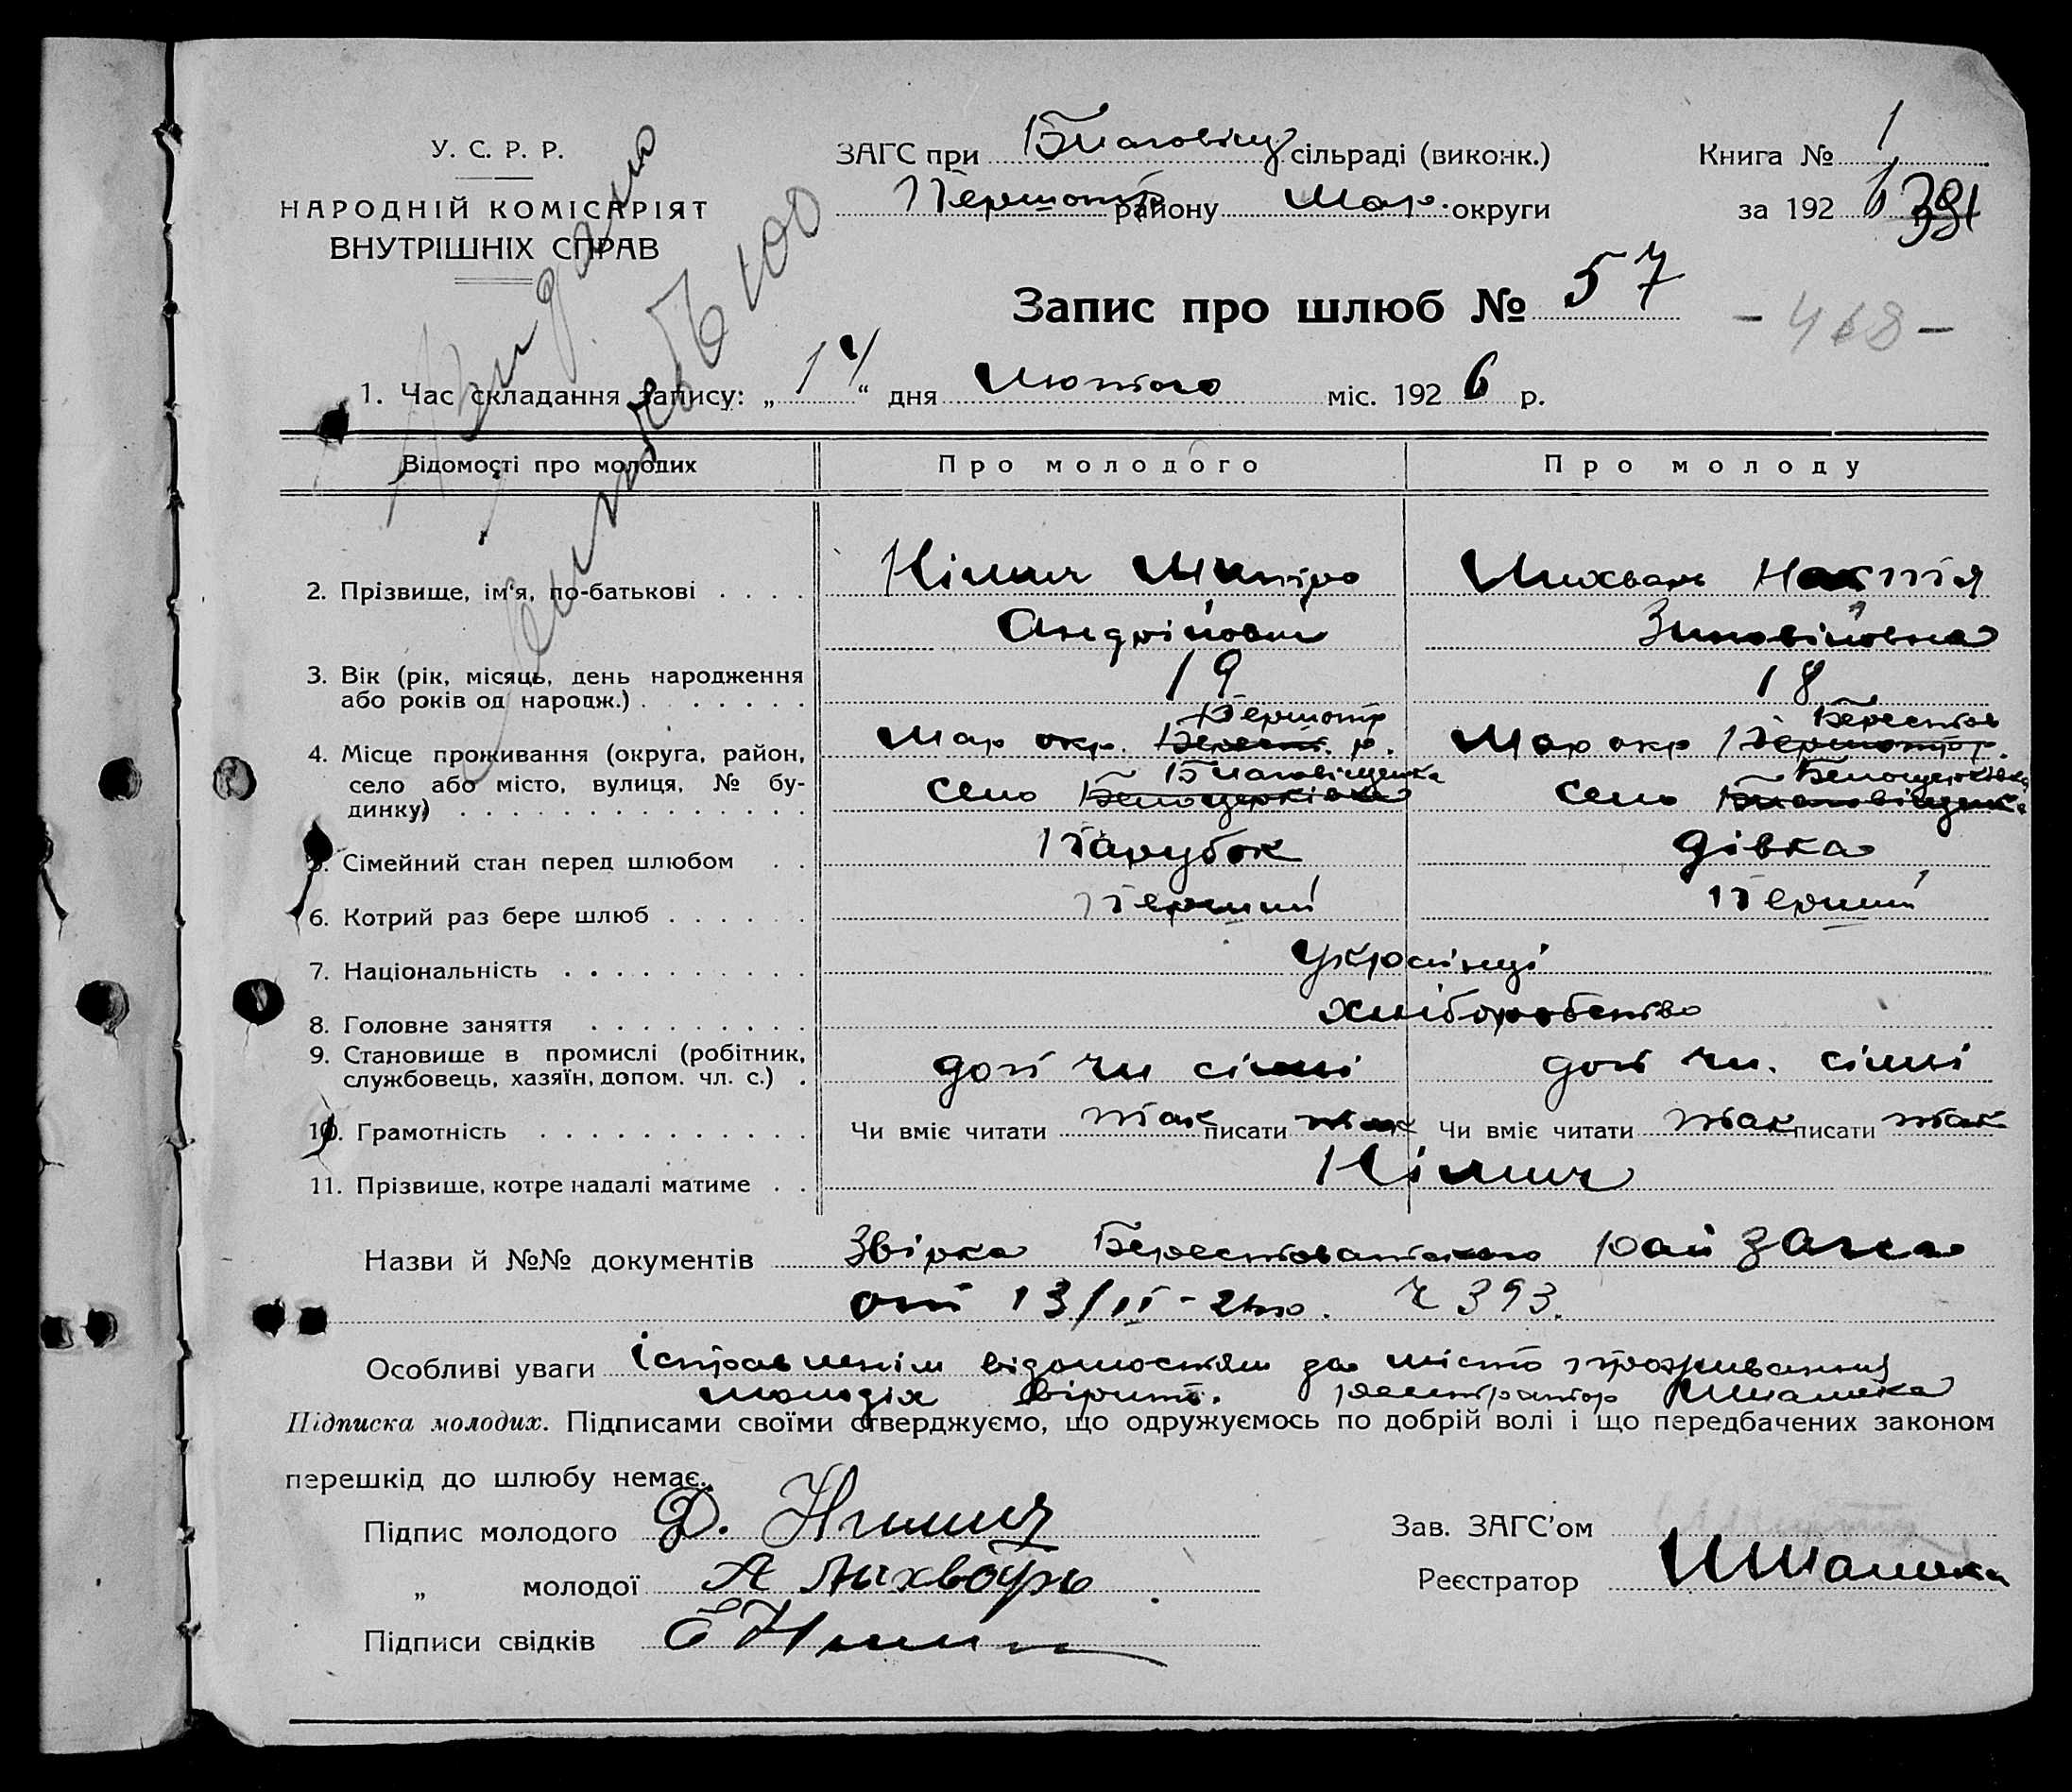 У. С. Р. Р.
НАРОДНІЙ КОМІСАРІЯТ
ВНУТРІШНІХ СПРАВ
Видано
ЗАГС при Благовіщ сільраді (виконк.)
Першотр району Мар. округи
Книга № 1
за 192 6 391
Запис про шлюб № 57
- 468 -
1. Час складання запису: „ 14 “ дня Лютого міс. 192 6 р.
Відомості про молодих Про молодого Про молоду
2. Прізвище, ім'я, по-батькові . . . . Німич Митро Лихварь
Андрійович Зиновійовна
3. Вік (рік, місяць, день народження
або років од народж.) . . . . . . . 19 18
Першотр Берестов
4. Місце проживання (округа, район, Мар окр. Берест. р. Мар окр Першотр.
Благовіщенка Белоцерківка
село або місто, вулиця, № бу- село Белоцерківка село Благовіщенка
динку) . . . . . . . . . . . . . .
5. Сімейний стан перед шлюбом . . Парубок дівка
6. Котрий раз бере шлюб . . . . . . Перший Перший
7. Національність . . . . . . . . . . Українці
8. Головне заняття . . . . . . . . . хліборобство
9. Становище в промислі (робітник,
службовець, хазяїн, допом. чл. с.) . доп чл сімі доп чл. сімі
10. Грамотність . . . . . . . . . . . Чи вміє читати так писати так Чи вміє читати так писати так
11. Прізвище, котре надалі матиме . . Німич
Назви й №№ документів Звірка Берестоватського Рай загса
от 13/II-26го. Ч 393.
Особливі уваги Ісправленім відомостям да місто проживання
молодіх вірить. реєстратор
Підписка молодих. Підписами своїми стверджуємо, що одружуємось по добрій волі і що передбачених законом
перешкід до шлюбу немає.
Підпис молодого Д. Нимич Зав. ЗАГС’ом
„ молодої А Лыхварь Реєстратор
Підписи свідків